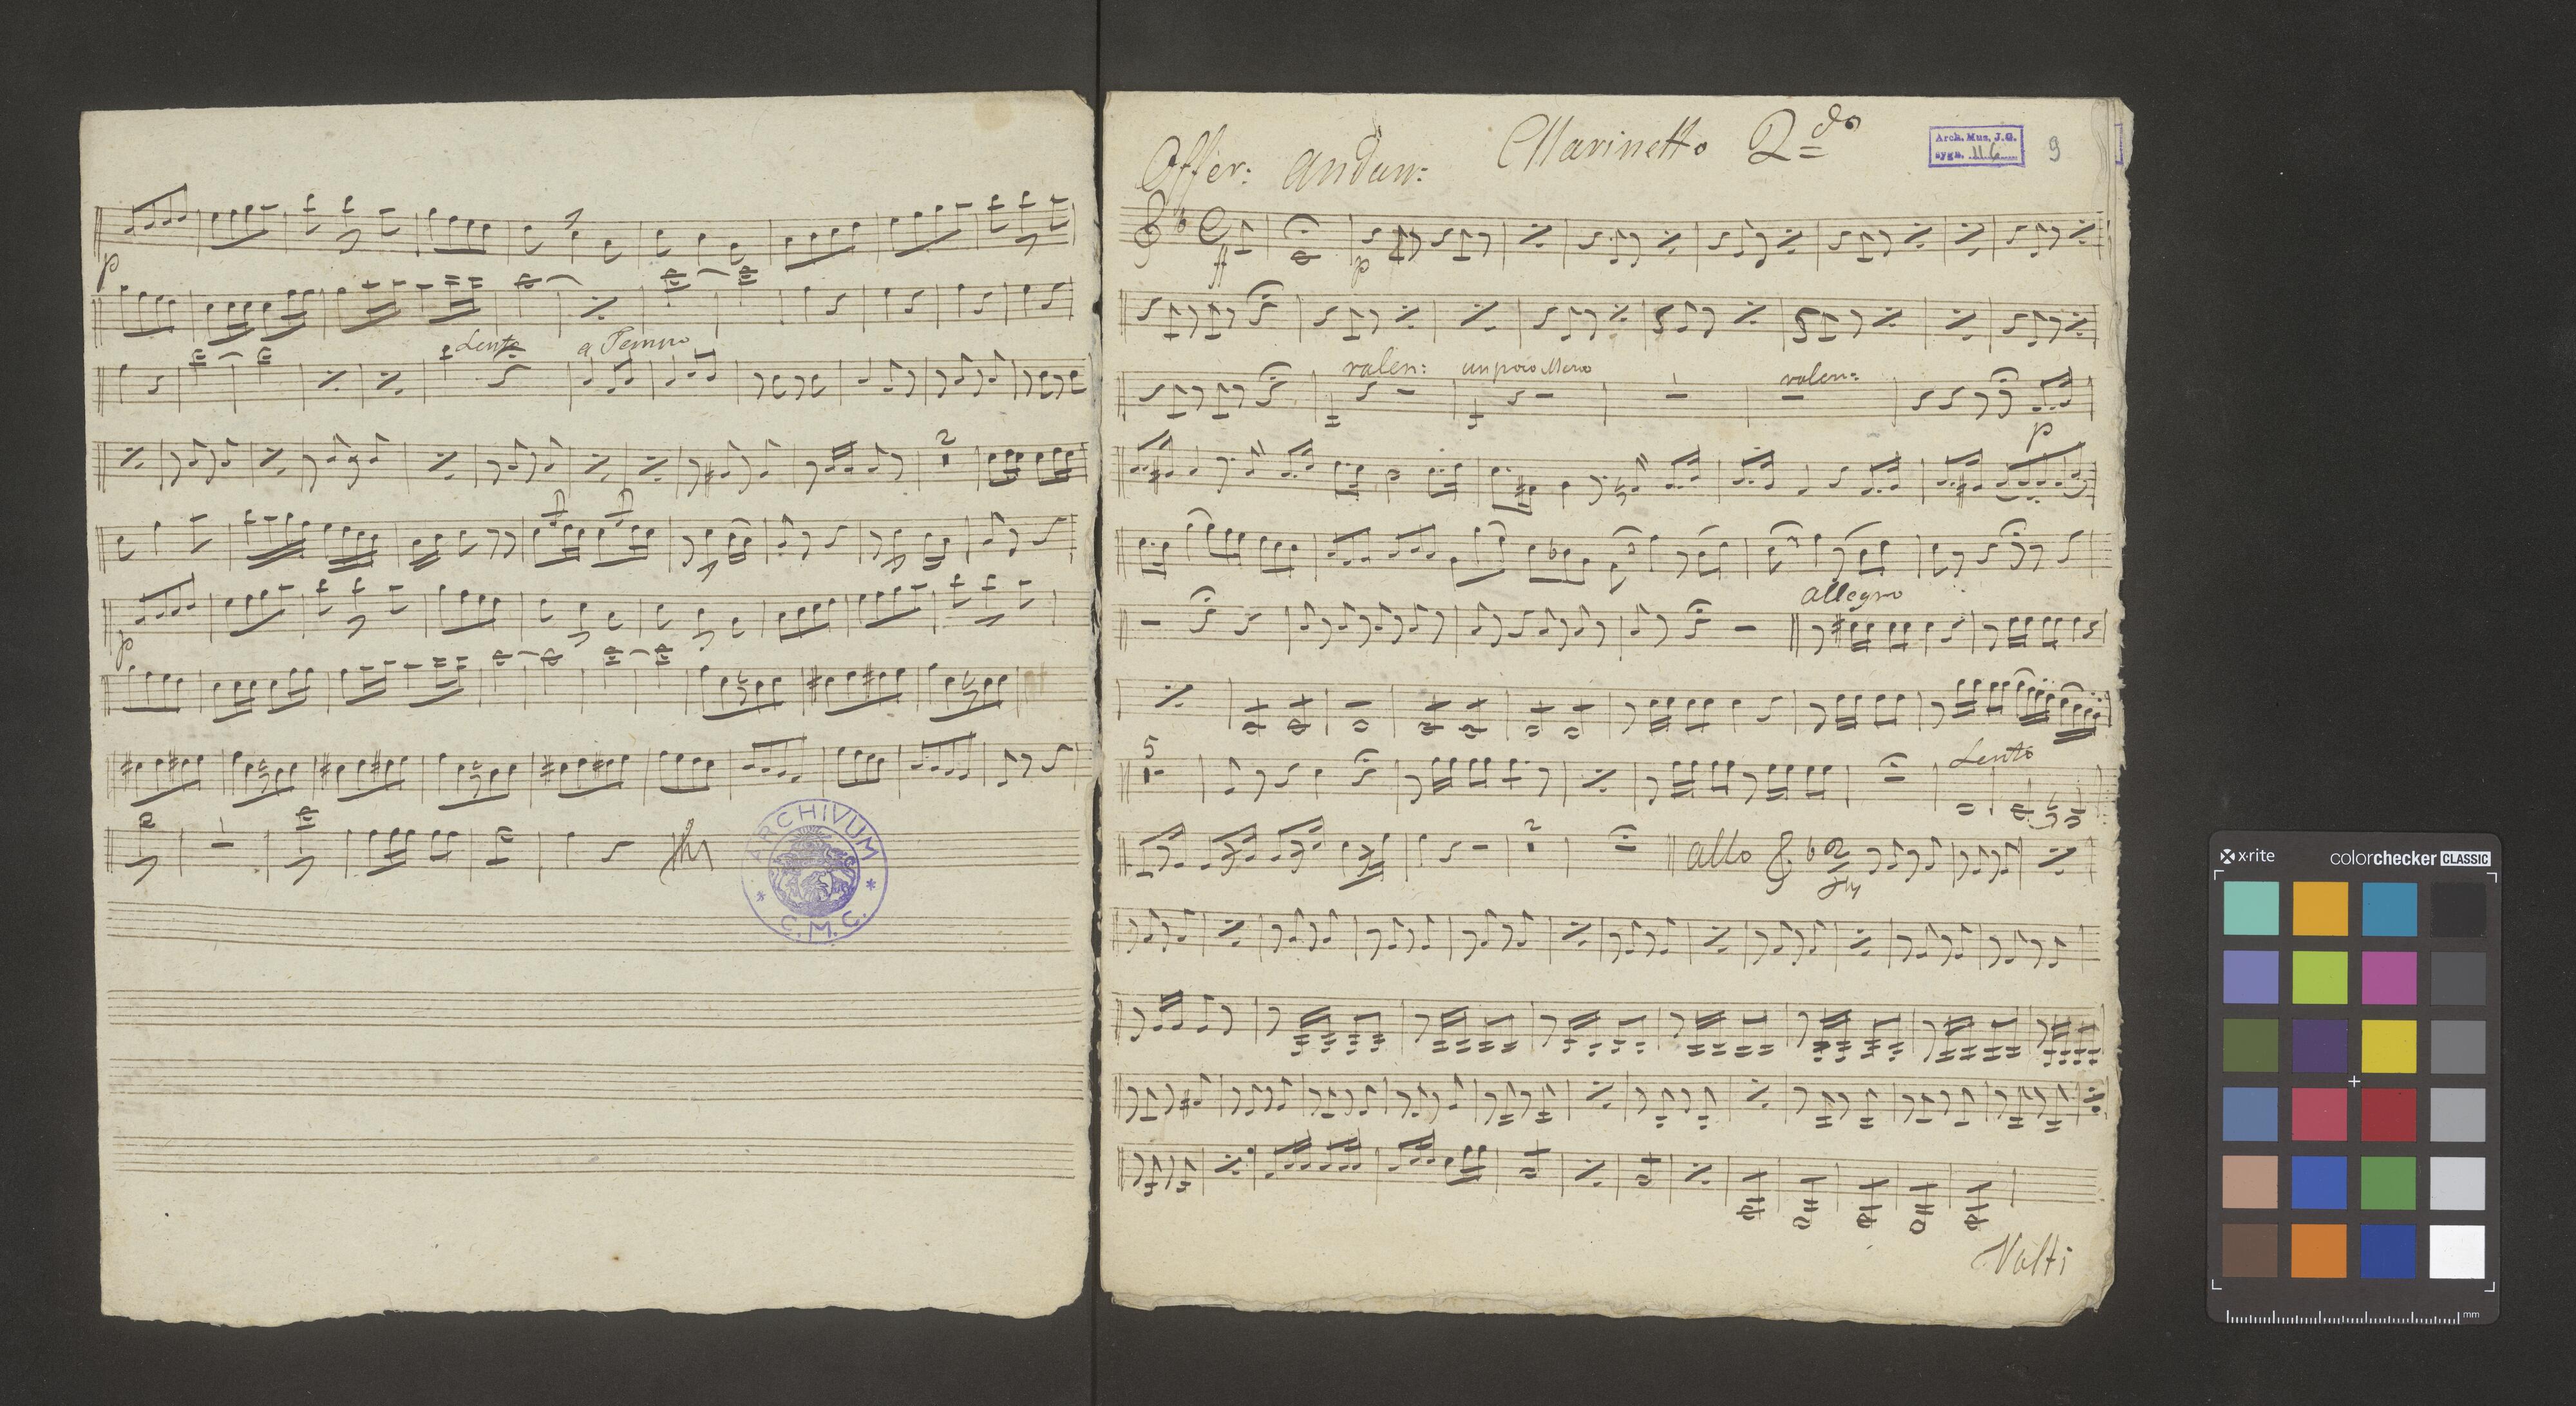 p
Lento a Tempo
2
p
2 1
ARCHIVUM
* C.M.C. *
Clarinetto 2do
Arch. Mus. J.G.
sygn. 116
9
Offer: Andan:
ff p
valen: un poco Meno valen:
p
allegro
5 Lento
2 allo
Volti
x·rite colorchecker CLASSIC
mm